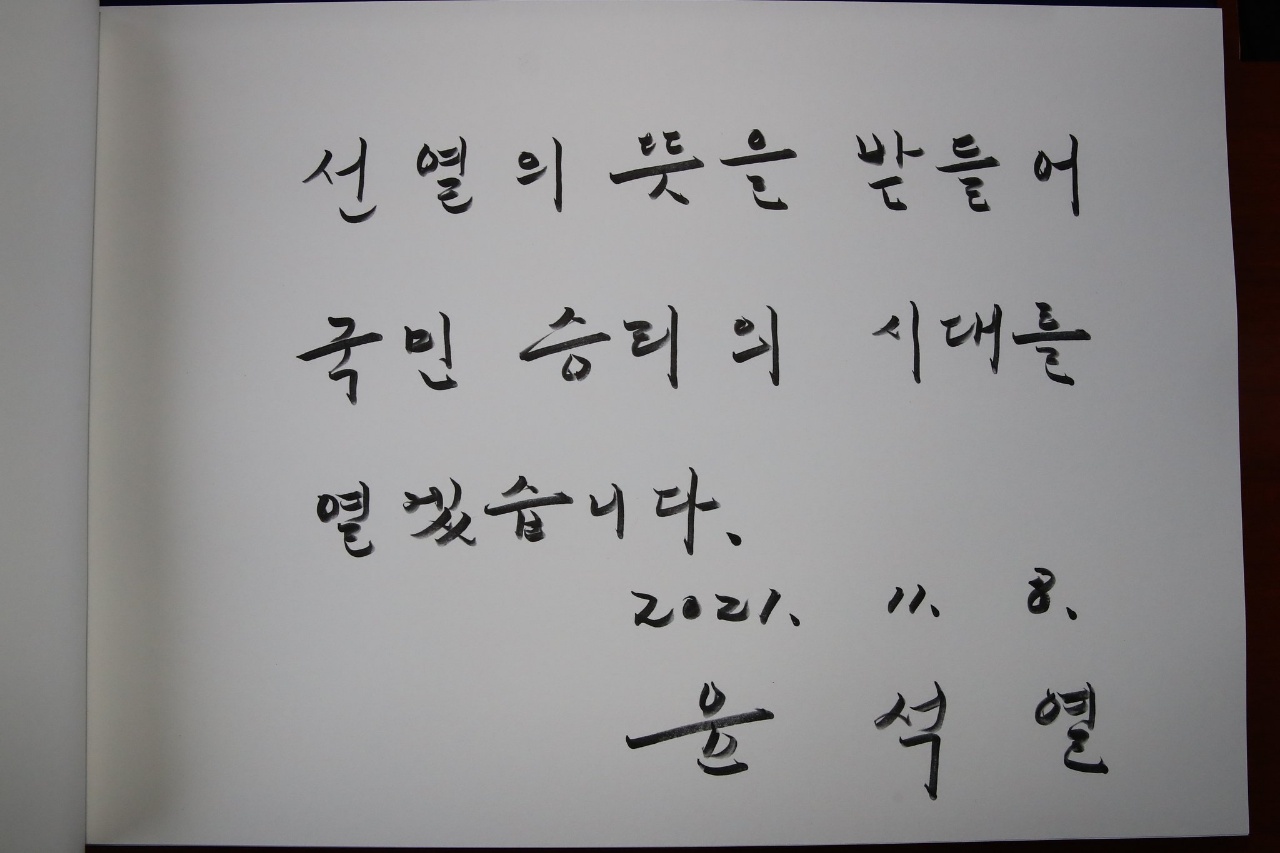 선열의 뜻을 받들어
국민 승리의 시대를
열겠습니다.
2021. 11. 8.
윤석열